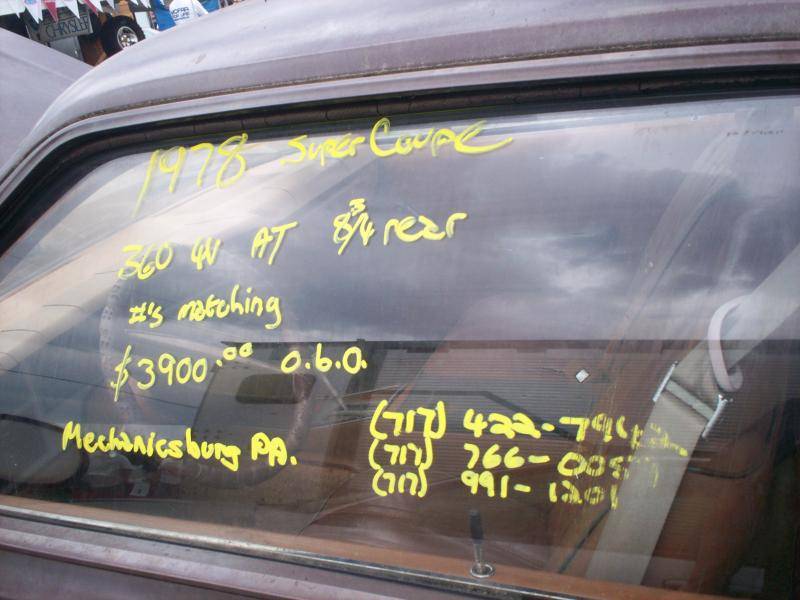 CHRYSLER
MOPAR
1978 Super Coupe
360 4V AT 8 3/4 rear
#'s matching
$3900.00 o.b.o.
Mechanicsburg PA.
(717) 422-
(717) 766-
(717) 991-1201